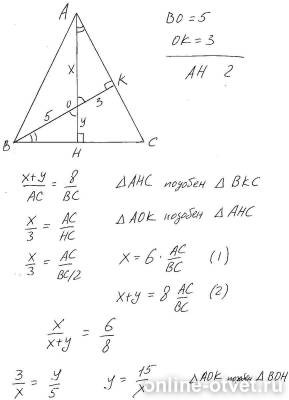 A
BO = 5
OK = 3
AH 2
x
K
3
O
5
y
B
H
C
x+y/AC = 8/BC △AHC подобен △BKC
x/3 = AC/HC △AOK подобен △AHC
x/3 = AC/BC/2 x = 6 · AC/BC (1)
x+y = 8 AC/BC (2)
x/x+y = 6/8
3/x = y/5 y = 15/x △AOK подобен △BOH
online-otvet.ru